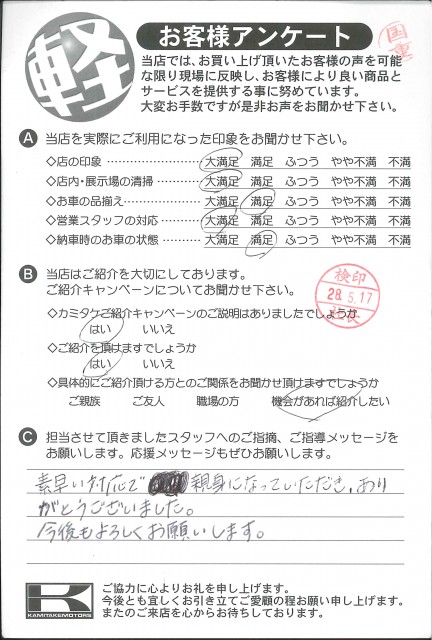 軽
お客様アンケート
当店では、お買い上げ頂いたお客様の声を可能
な限り現場に反映し、お客様により良い商品と
サービスを提供する事に努めています。
大変お手数ですが是非お声をお聞かせ下さい。
A 当店を実際にご利用になった印象をお聞かせ下さい。
◇店の印象 大満足 満足 ふつう やや不満 不満
◇店内・展示場の清掃 大満足 満足 ふつう やや不満 不満
◇お車の品揃え 大満足 満足 ふつう やや不満 不満
◇営業スタッフの対応 大満足 満足 ふつう やや不満 不満
◇納車時のお車の状態 大満足 満足 ふつう やや不満 不満
B 当店はご紹介を大切にしております。
ご紹介キャンペーンについてお聞かせ下さい。
検印
28.5.17
社長
◇カミタケご紹介キャンペーンのご説明はありましたでしょうか
はい いいえ
◇ご紹介を頂けますでしょうか
はい いいえ
◇具体的にご紹介頂ける方とのご関係をお聞かせ頂けますでしょうか
ご親族 ご友人 職場の方 機会があれば紹介したい
C 担当させて頂きましたスタッフへのご指摘、ご指導メッセージを
お願いします。応援メッセージもぜひお願いします。
素早い対応で 親身になっていただき、あり
がとうございました。
今後もよろしくお願いします。
K
KAMITAKEMOTORS
ご協力に心よりお礼を申し上げます。
今後とも宜しくお引き立てご愛顧の程お願い申し上げます。
またのご来店を心からお待ちしております。